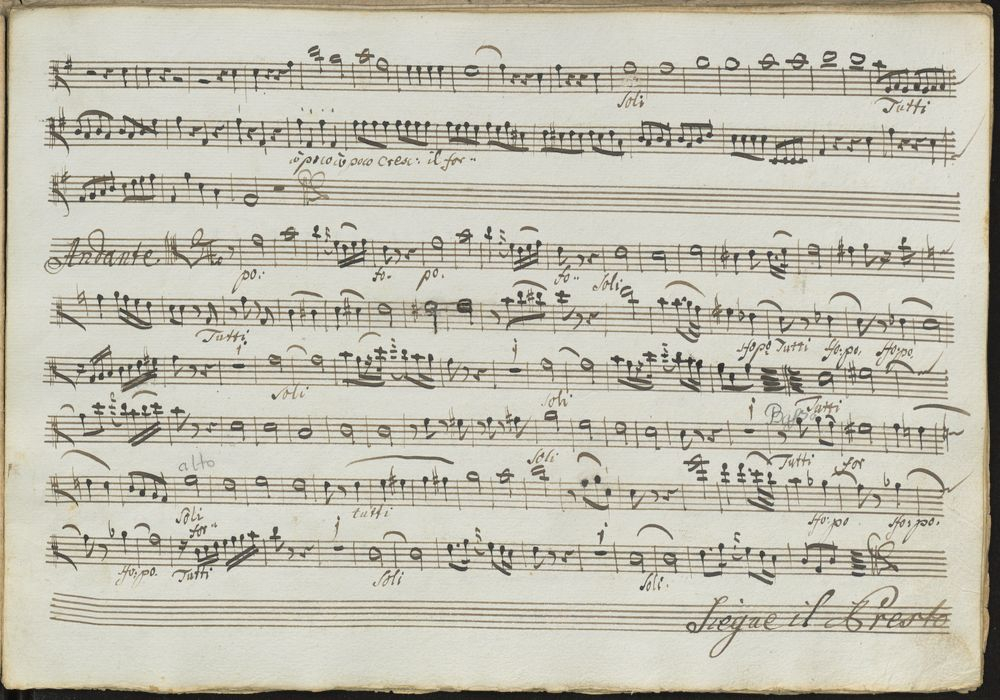 Soli Tutti
à poco à poco cresc: il for:
Andante po: fo. po. fo: Soli
Tutti fo po Tutti fo: po. fo: po
1 Soli 1 Soli
1 Tutti
alto Soli Tutti for
Soli tutti fo: po fo: po.
for: 1 1
fo: po. Tutti Soli Soli.
Siegue il Presto